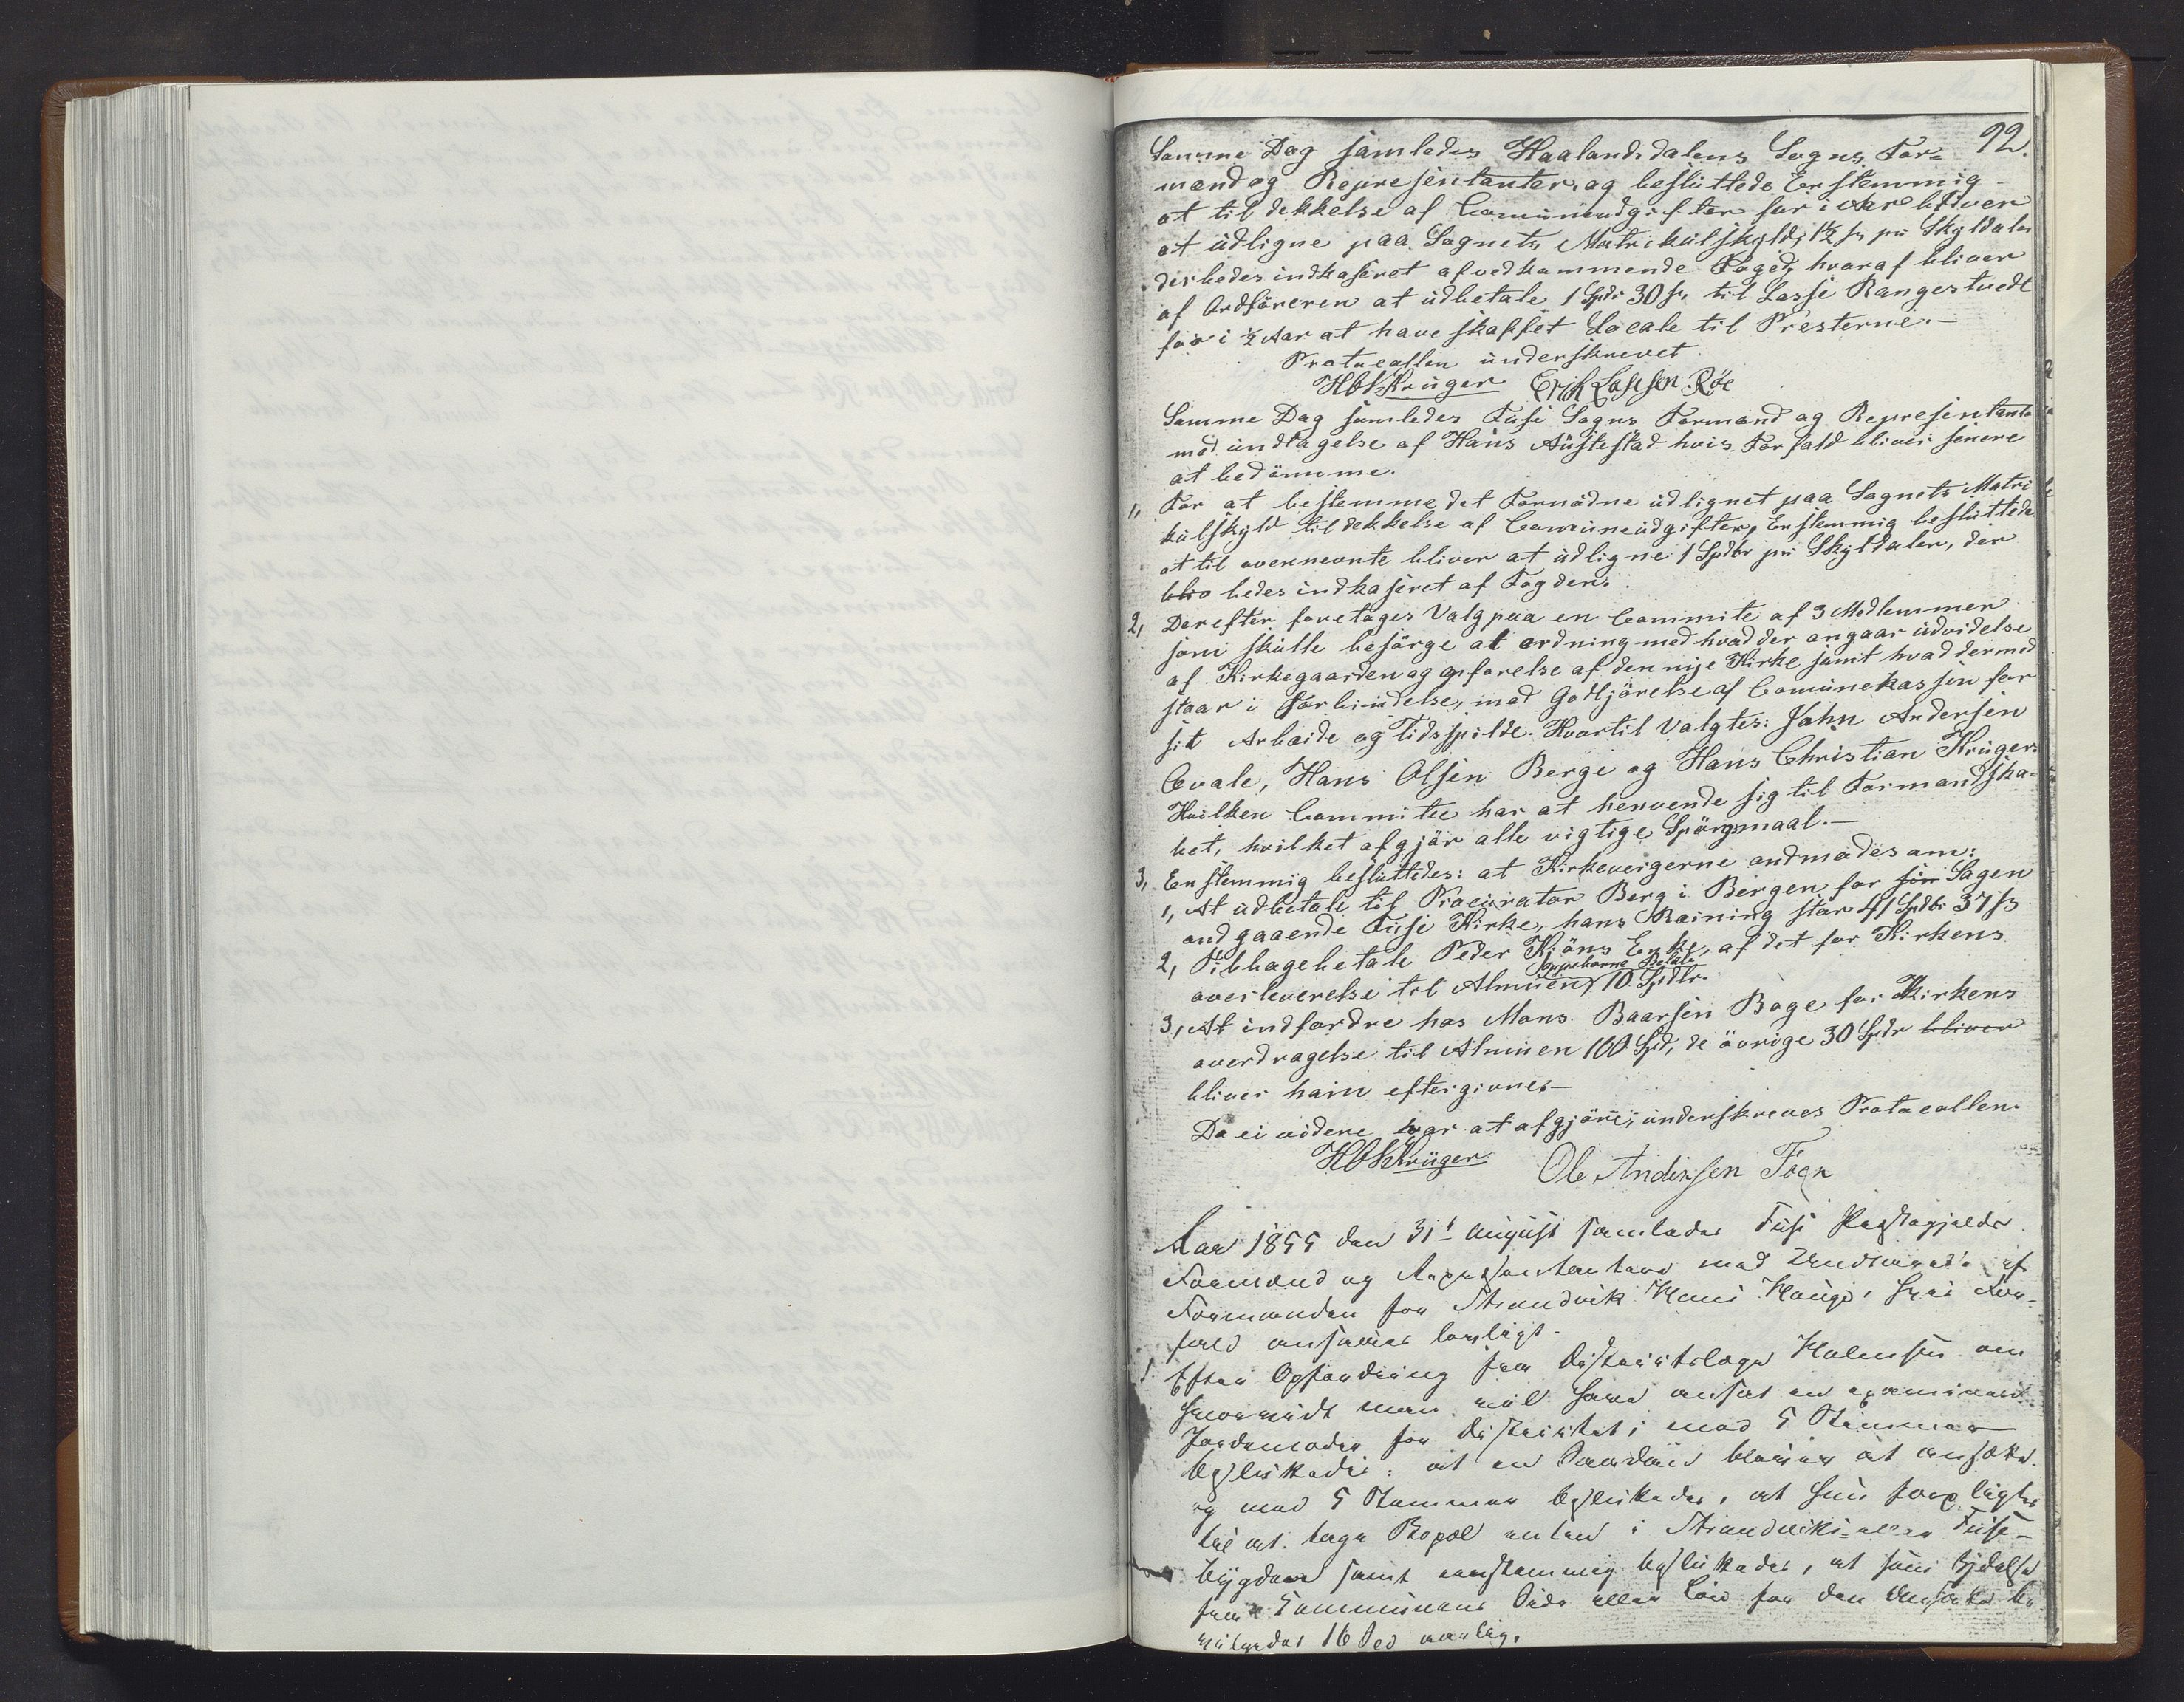 92.
Samme Dag samledes Haalandsdalens Sogns For-
mænd og Representanter, og besluttede Enstemmig
at til dekkelse af Comuneudgifter for i Aar bliver
at udligne paa Sognets Matrikulskyld, 1½ s pr Skyldaler
der bedes indkaseret af vedkommende Foged, hvoraf bliver
af Ordföreren at udbetale 1 Spdr 30 s, til Lasse Rangestvedt
for i ½ Aar at have skaffet Locale til Presterne.—
Protocollen underskrevet.
HCKrüger Erik Lassen Röe
Samme Dag samledes Fuse Sogns Formænd og Representante
med undtagelse af Hans Austestad hvis Forfald bliver senere
at bedömme.
1, For at bestemme det Fornödne udlignet paa Sognets Matri
kulskyld til dekkelse af Comuneudgifter, Enstemmig besluttede
at til ovennevnte bliver at udligne 1 Spdlr pr Skyldaler, der
bliv bedes indkaseret af Fogden.
2, Derefter foretages Valg paa en Committe af 3 Medlemmer
som skulle besörge al ordning med hvad der angaar udvidelse
af Kirkegaarden og opförelse af den nye Kirke samt hvad dermed
staar i forbindelse, mod Godtjörelse af Comunekassen for
sit Arbeide og Tidsspilde. Hvortil Valgtes: John Andersen
Evale, Hans Olsen Berge og Hans Christian Krüger.
Hvilken Committee har at henvende sig til Formandska-
bet, hvilket afgjör alle vigtige Spörgsmaal.—
3, Enstemmig besluttedes: at Kirkevergerne andmodes om:
1, At udbetale til Procurator Berg i Bergen for sin Sagen
andgaaende Fuse Kirke, hans Raining stor 41 Spdlr 37 s
2, Tilbagebetale Peder Kjöns Enke, af det for Kirkens
overleverelse til Almuen, 10 Spdlr.
3, At indfordre hos Mons Baarsen Boge for Kirkens
overdragelse til Almuen 100 Spd, de övrige 30 Spdr bliver
bliver ham eftergivne.—
Da ei videre var at afgjöre, underskreves Protocollen.
HCKrüger Ole Andersen Toen
Aar 1855 den 31t August samledes Fuse Præstegjelds
Formænd og Repræsentantere med Undtagelse af
Formanden for Strandvik Hans Hauge, hvis For-
fald ansaaes lovligt.
1. Efter Opfordring fra Districtslæge Holmsen om
hvorvidt man vil have ansat en examineret
Jordemoder for Districtet; med 5 Stemmer
besluttedes: at en Saadan bliver at ansætte.
og med 5 Stemmer besluttedes, at hun forpligtes
til at tage Bopæl enten i Strandviks- eller Fuse-
bygden samt eenstemmig besluttedes, at som Hjælp
fra Communens Side eller Løn for den Ansatte be
vilgedes 16 Spd aarlig.